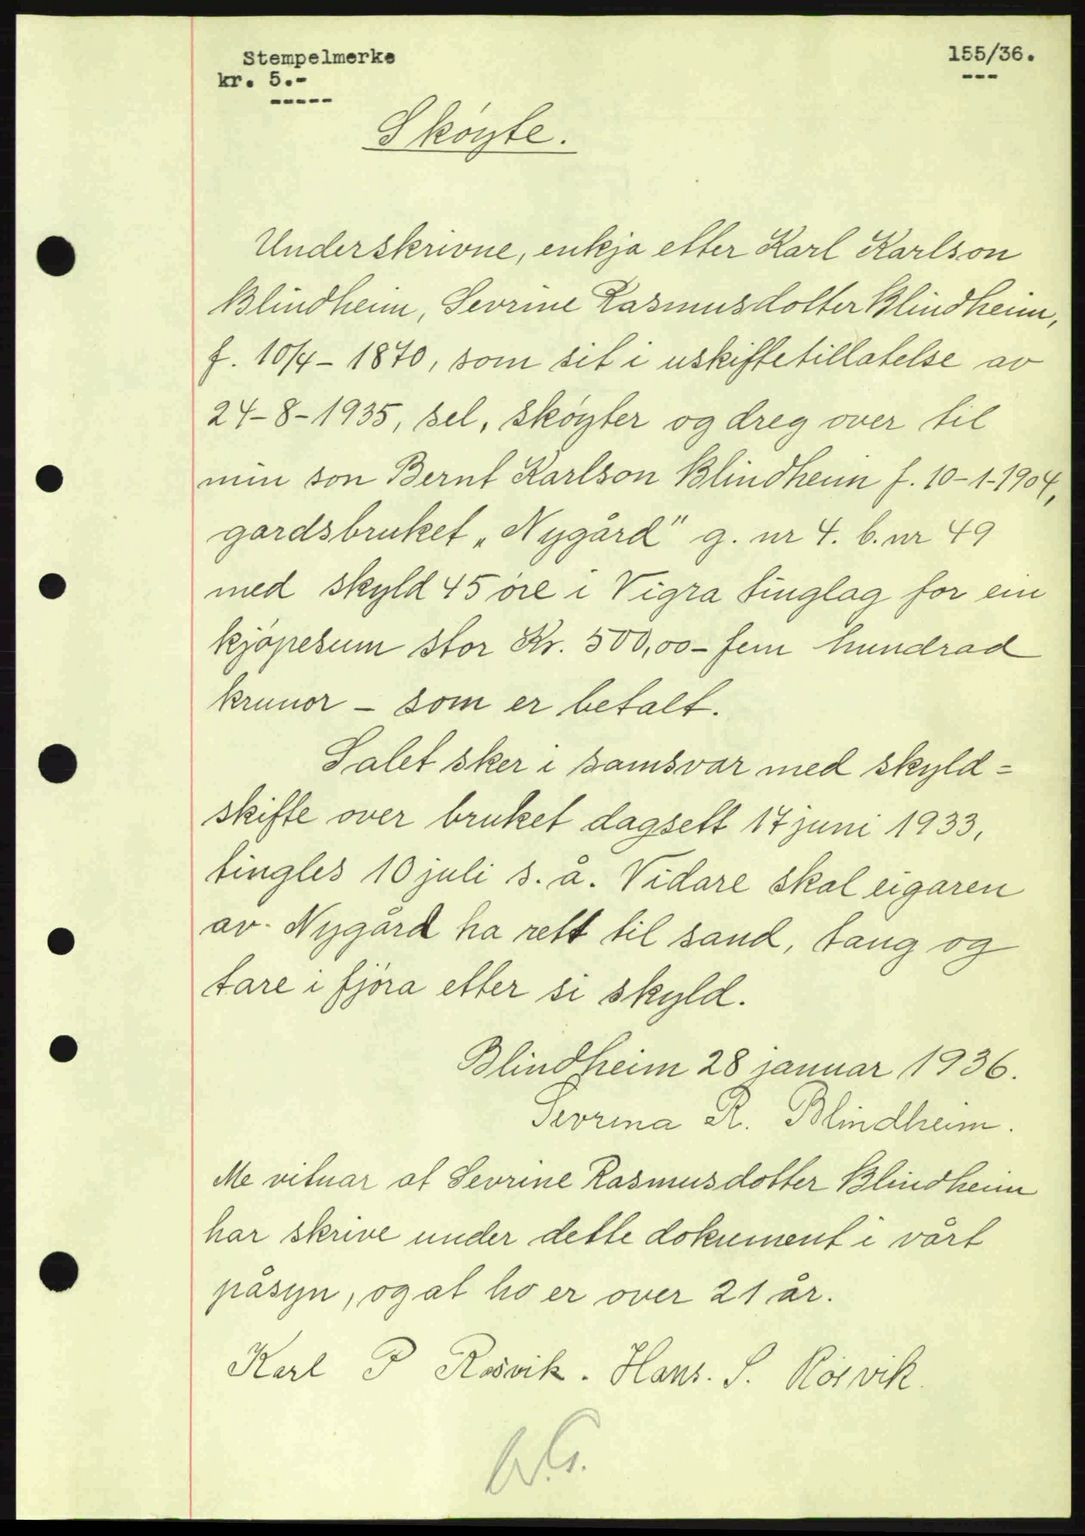 Stempelmerke
kr. 5.-
155/36.
Skøyte.
Underskrivne, enkja etter Karl Karlson
Blindheim, Sevrine Rasmusdotter Blindheim,
f. 10/4 - 1870, som sit i uskiftetillatelse av
24-8-1935, sel, skøyter og dreg over til
min son Bernt Karlson Blindheim f. 10-1-1904,
gardsbruket „Nygård" g. nr 4. b. nr 49
med skyld 45 øre i Vigra tinglag for ein
kjøpesum stor Kr. 500,00 - fem hundrad
krunor - som er betalt.
Salet sker i samsvar med skyld=
skifte over bruket dagsett 17 juni 1933,
tingles 10 juli s. å. Vidare skal eigaren
av Nygård ha rett til sand, tang og
tare i fjøra etter si skyld.
Blindheim 28 januar 1936.
Sevrina R. Blindheim.
Me vitnar at Sevrine Rasmusdotter Blindheim
har skrive under dette dokument i vårt
påsyn, og at ho er over 21 år.
Karl P Røsvik. Hans. S. Røsvik.